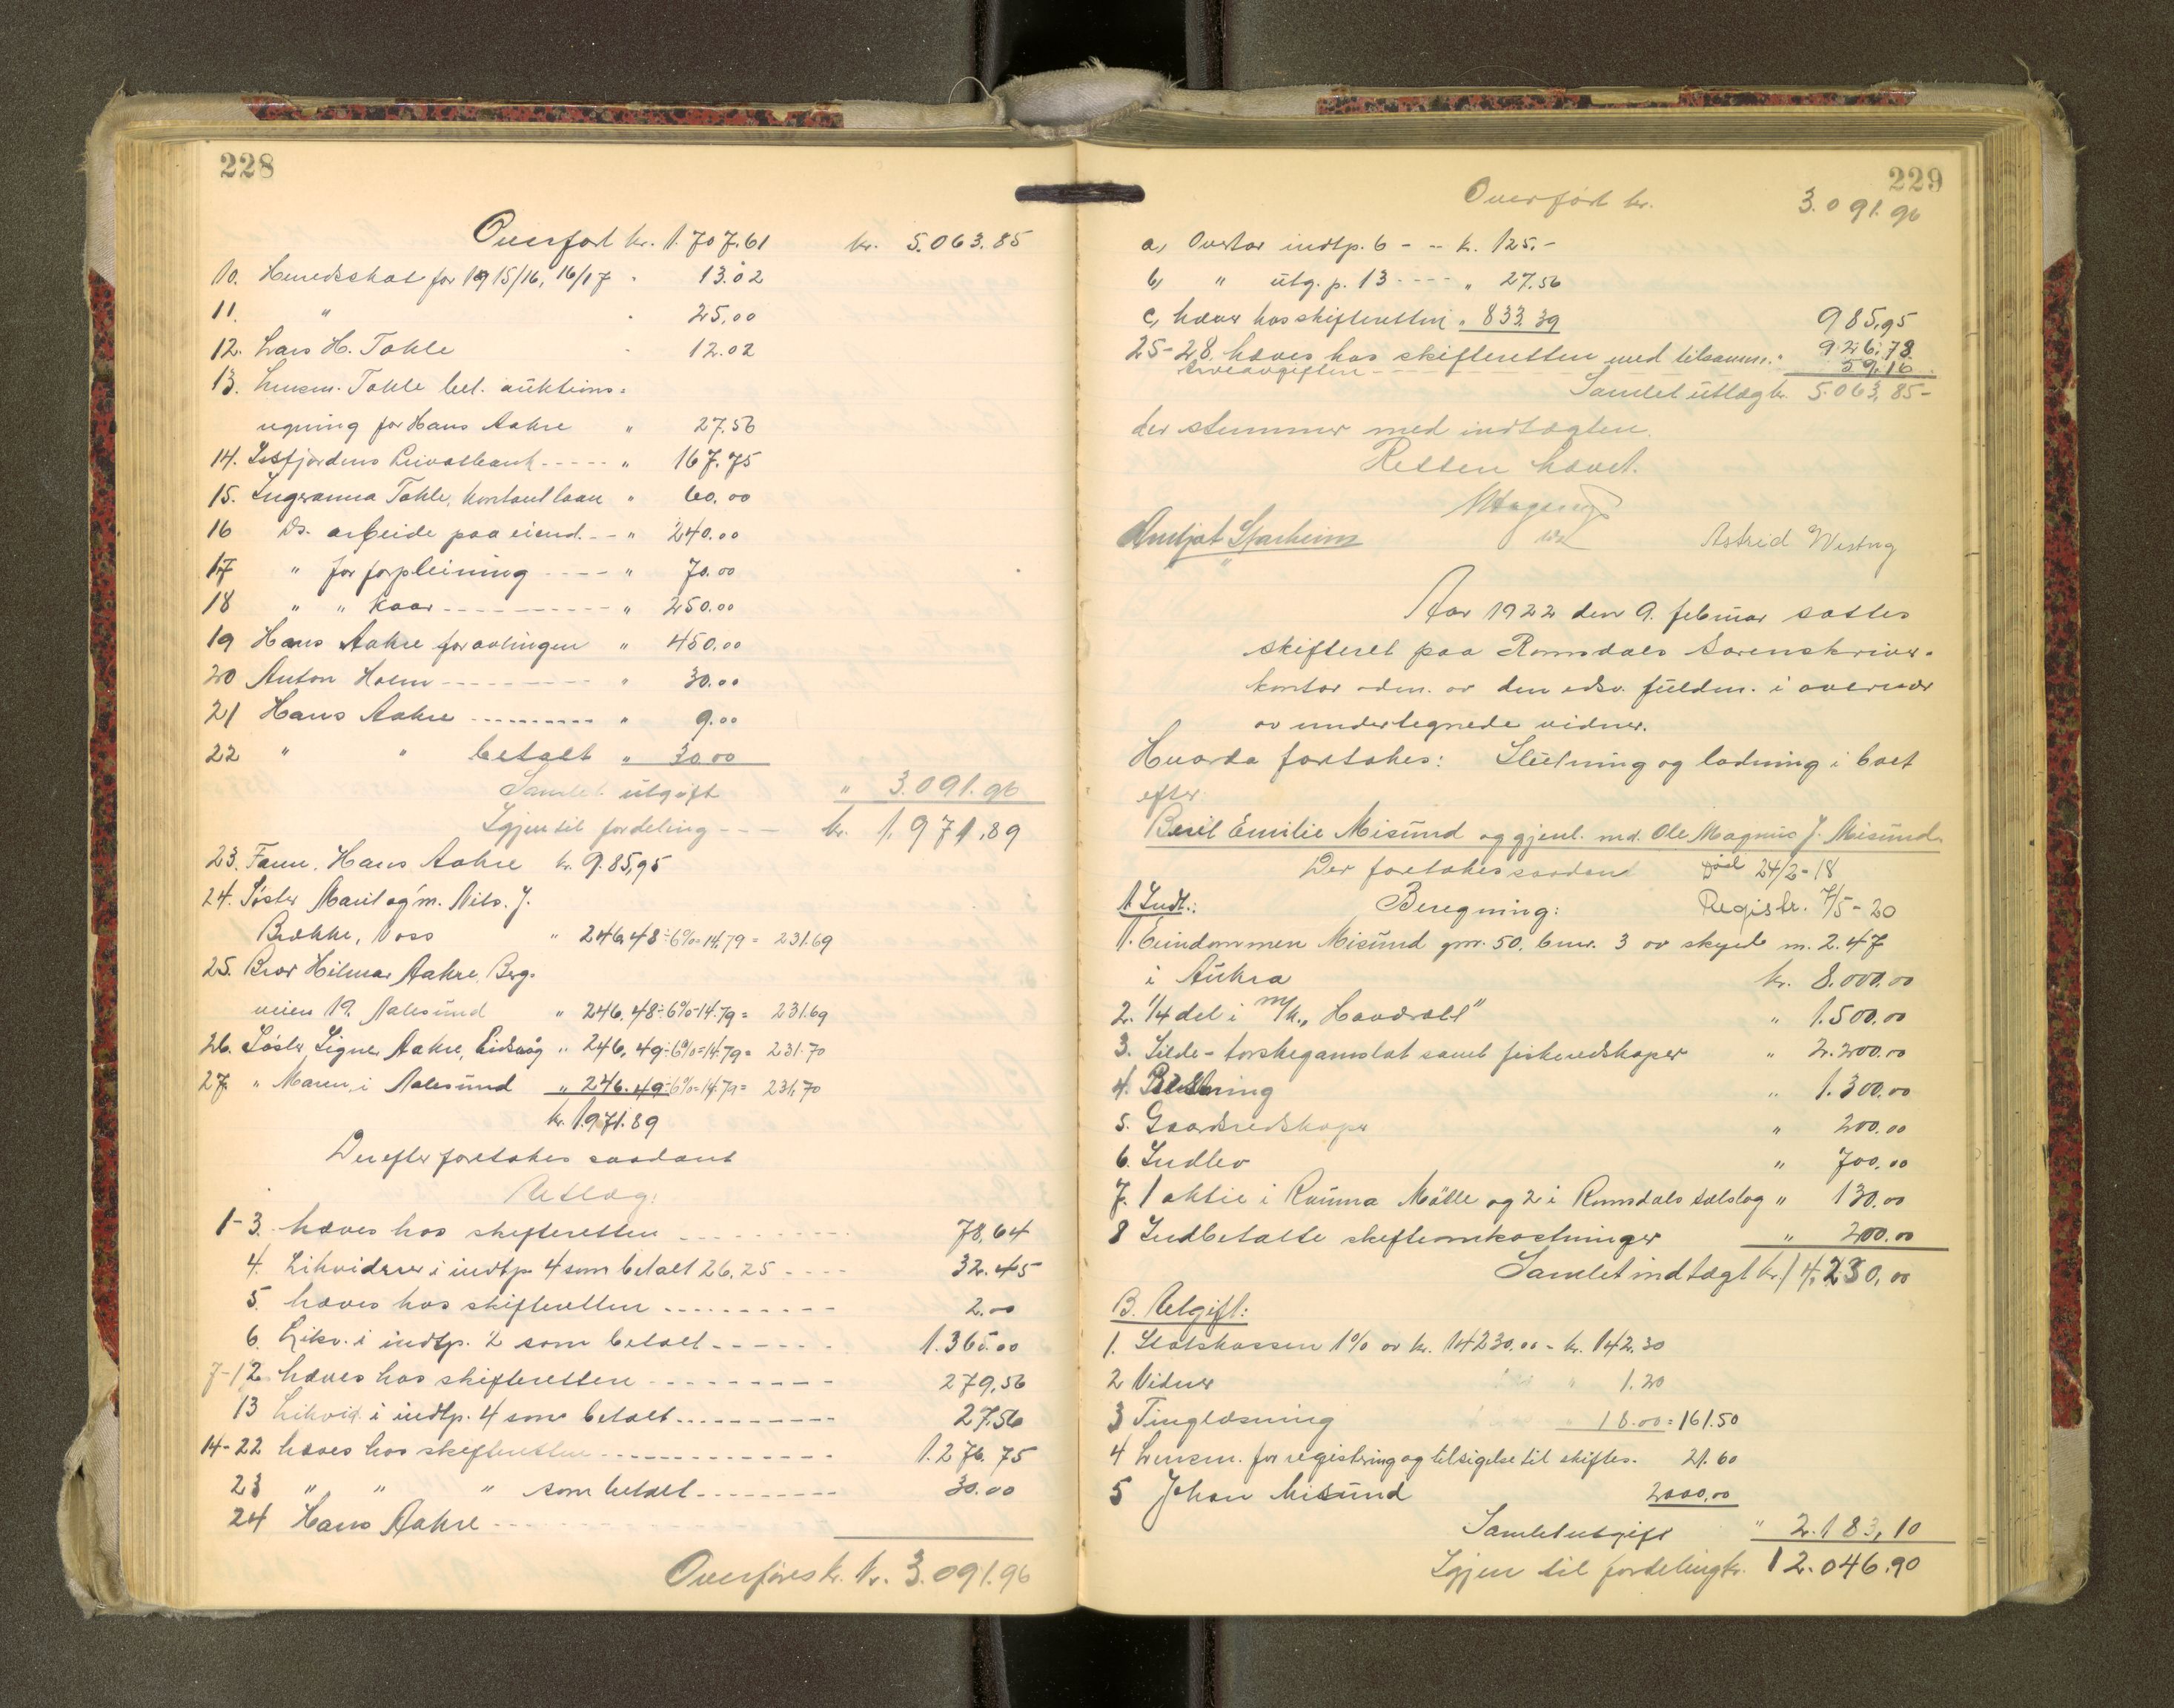 228
Overført kr. 1.707.61 kr. 5.063.85
10. Herredsskat for 1915/16, 16/17 " 13.02
11. " " 25.00
12. Lars H. Tokle " 12.02
13. Lensm. Tokle bet. auktions=
regning for Hans Aakre " 27.56
14. Isfjordens Privatbank ----- " 167.75
15. Ingeranna Tokle, kontant laan " 60.00
16 Ds. arbeide paa eiend. -- " 240.00
17 " for forpleining ---- " 70.00
18 " " kaar ---------- " 250.00
19 Hans Aakre for avlingen " 450.00
20 Anton Holm --------- " 30.00
21 Hans Aakre --------- " 9.00
22 " " betalt " 30.00
Samlet utgift " 3.091.96
Igjen til fordeling --- kr. 1.971,89
23. Hans Aakre kr. 985,95
24. Søster Marit og m. Nils. J.
Brække, Voss " 246.48÷6%=14.79= 231.69
25. Bror Hilmar Aakre, Berg-
veien 19. Aalesund " 246.48÷6%=14.79= 231.69
26. Søster, Signe Aakre, Eidsvåg " 246,49÷6%=14.79= 231.70
27. " Maren, i Aalesund " 246.49÷6%=14.79= 231,70
kr. 1.971.89
Derefter foretokes saadant
Utlæg:
1-3. hæves hos skifteretten --------- 78,64
4. Likviderer i indtp. 4 som betalt 26.25 ---- 32.45
5. hæves hos skifteretten --------- 2.00
6. Likv. i indtp. 2 som betalt ------ 1.365.00
7-12 hæves hos skifteretten --------- 279,56
13 Likvid. i indtp. 4 som betalt --------- 27.56
14-22 hæves hos skifteretten ------------- 1.276.75
23 " " " som betalt --------- 30.00
24 Hans Aakre --------
Overføres kr. kr. 3.091.96
229
Overført kr. 3.091.96
a, Overtar indtp. 6 - -- kr. 125.-
b, " utg. p. 13 ---- " 27.56
c, hæver hos skifteretten " 833.39 985,95
25-28. hæves hos skifteretten med tilsamm. " 926,78
Arveavgiften ------ 59,16
Samlet utlæg kr. 5.063,85-
der stemmer med indtægten.
Retten hævet.
Astrid
Aar 1922 den 9. februar sattes
skifteret paa Romsdals sorenskriver-
kontor adm. av den edsv. fuldm. i overvær
av undertegnede vidner.
Hvorda foretokes: Slutning og lodning i boet
efter
Beril Emilie Misund og gjenl. md. Ole Magnus J. Misund.
Der foretokes saadan død 24/2-18
A. Indt.: Beregning: Registr. 7/5-20
1. Eiendommen Misund gnr. 50, bnr. 3 av skyld m. 2.47
i Aukra kr. 8.000.00
2. 1/4 del i m/k. "Haavdrott" " 1.500.00
3. Silde- torskegarnslat samt fiskeredskaper " 2.200.00
4. Besetning " 1.300.00
5. Gaardsredskaper " 200.00
6. Indbo " 700.00
7. 1 aktie i Rauma Mölle og 2 i Romsdals salslag " 130.00
8 Indbetalte skifteomkostninger " 200.00
Samlet indtægt kr. 14,230,00
B. Utgift:
1. Statskassen 1% av kr. 14230.00 - kr. 142.30
2 Vidner " 1.20
3 Tinglæsning 18.00 = 161.50
4 Lensm. for registrering og tilsigelse til skiftes. 21.60
5 Johan Misund 2000.00
Samlet utgift " 2.183,10
Igjen til fordeling kr. 12.046.90